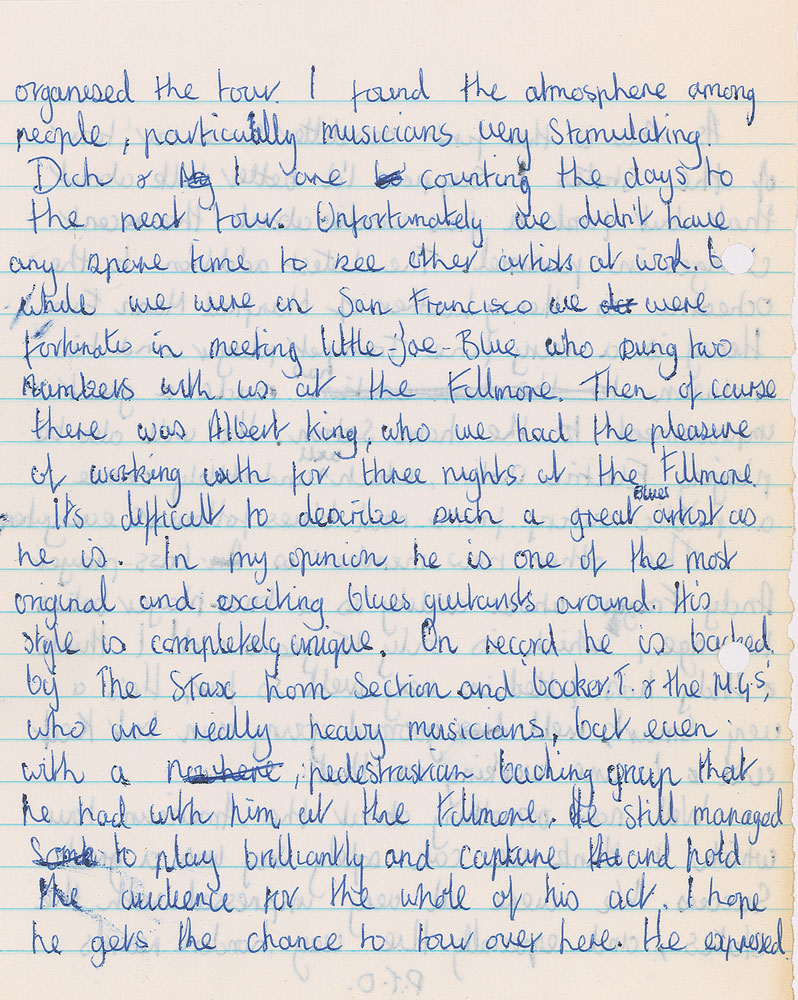 organised the tour. I found the atmosphere among
people, particularly musicians very Stimulating.
Dick & I are counting the days to
the next tour. Unfortunately we didn't have
any spare time to see other artists at work. b
while we were in San Francisco we were
fortunate in meeting little-Joe-Blue who sung two
numbers with us at the Fillmore. Then of course
there was Albert King, who we had the pleasure
of working with for three nights at the Fillmore.
It's difficult to describe such a great blues artist as
he is. In my opinion he is one of the most
original and exciting blues guitarists around. His
style is completely unique. On record he is backed
by The Stax horn Section and booker.T. & the M.G.s,
who are really heavy musicians, but even
with a nowhere, pedestrastian backing group that
he had with him at the Fillmore. He still managed
Some to play brilliantly and capture and hold
the audience for the whole of his act. I hope
he gets the chance to tour over here. He expressed
P.T.O.